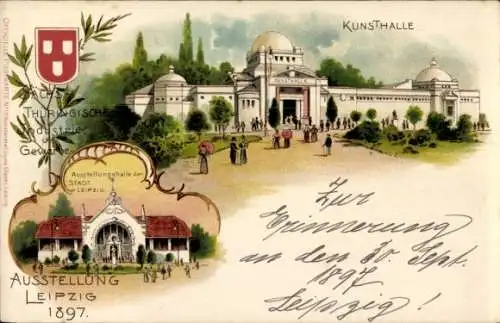 KUNSTHALLE
THÜRINGISCHE
Industrie
Gewerbe
Ausstellungshalle der
STADT
LEIPZIG.
AUSSTELLUNG
LEIPZIG
1897.
Zur
Erinnerung
an den 30. Sept.
1897
Leipzig!